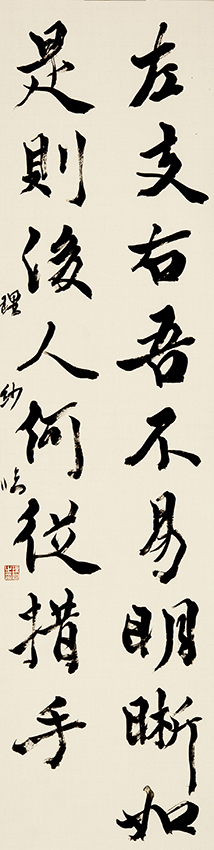 左支右吾不易明晰如
是則後人何從措手
理紗臨